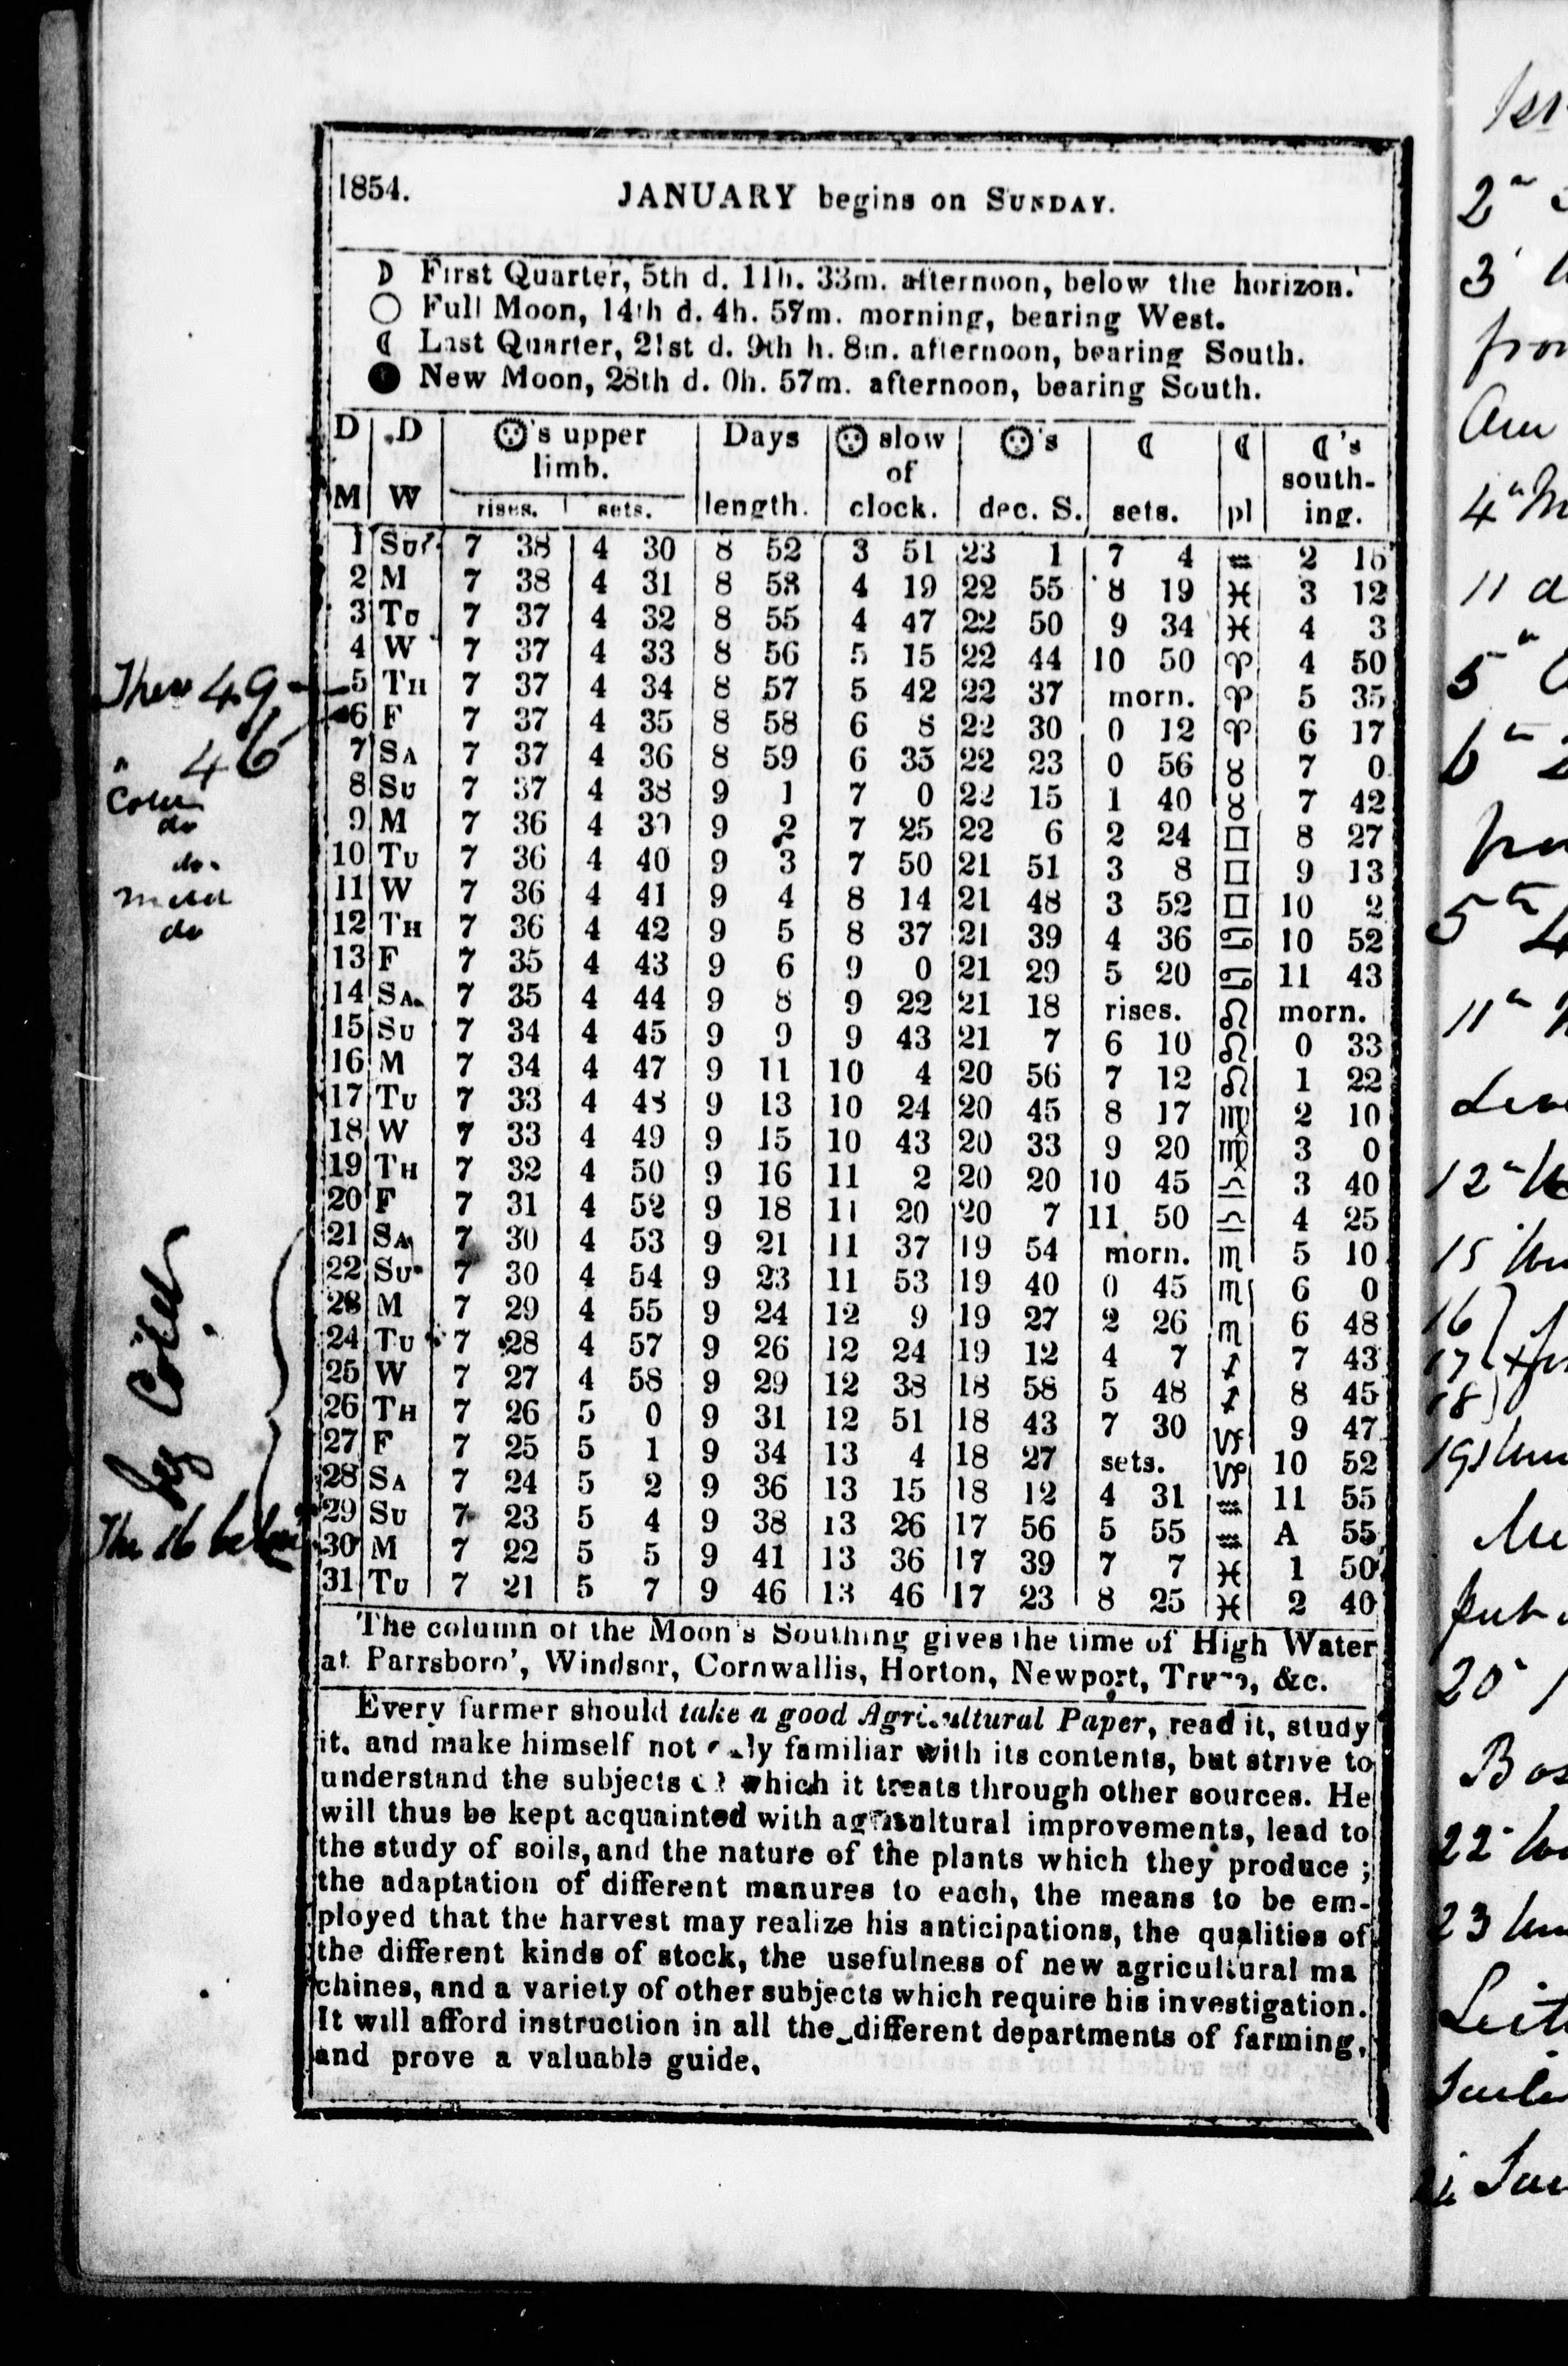 1854. JANUARY begins on SUNDAY.
☽ First Quarter, 5th d. 11h. 33m. afternoon, below the horizon.
○ Full Moon, 14th d. 4h. 57m. morning, bearing West.
☾ Last Quarter, 21st d. 9th h. 8m. afternoon, bearing South.
● New Moon, 28th d. 0h. 57m. afternoon, bearing South.
D M | D W | ☉'s upper limb. rises. | sets. | Days length. | ☉ slow of clock. | ☉'s dec. S. | ☾ sets. | ☾ pl | ☾'s south-ing.
1 SU 7 38 4 30 8 52 3 51 23 1 7 4 ♒ 2 16
2 M 7 38 4 31 8 53 4 19 22 55 8 19 ♓ 3 12
3 TU 7 37 4 32 8 55 4 47 22 50 9 34 ♓ 4 3
4 W 7 37 4 33 8 56 5 15 22 44 10 50 ♈ 4 50
5 TH 7 37 4 34 8 57 5 42 22 37 morn. ♈ 5 35
6 F 7 37 4 35 8 58 6 8 22 30 0 12 ♈ 6 17
7 SA 7 37 4 36 8 59 6 35 22 23 0 56 ♉ 7 0
8 SU 7 37 4 38 9 1 7 0 22 15 1 40 ♉ 7 42
9 M 7 36 4 39 9 2 7 25 22 6 2 24 ♊ 8 27
10 TU 7 36 4 40 9 3 7 50 21 51 3 8 ♊ 9 13
11 W 7 36 4 41 9 4 8 14 21 48 3 52 ♊ 10 2
12 TH 7 36 4 42 9 5 8 37 21 39 4 36 ♋ 10 52
13 F 7 35 4 43 9 6 9 0 21 29 5 20 ♋ 11 43
14 SA 7 35 4 44 9 8 9 22 21 18 rises. ♌ morn.
15 SU 7 34 4 45 9 9 9 43 21 7 6 10 ♌ 0 33
16 M 7 34 4 47 9 11 10 4 20 56 7 12 ♌ 1 22
17 TU 7 33 4 48 9 13 10 24 20 45 8 17 ♍ 2 10
18 W 7 33 4 49 9 15 10 43 20 33 9 20 ♍ 3 0
19 TH 7 32 4 50 9 16 11 2 20 20 10 45 ♎ 3 40
20 F 7 31 4 52 9 18 11 20 20 7 11 50 ♎ 4 25
21 SA 7 30 4 53 9 21 11 37 19 54 morn. ♏ 5 10
22 SU 7 30 4 54 9 23 11 53 19 40 0 45 ♏ 6 0
23 M 7 29 4 55 9 24 12 9 19 27 2 26 ♏ 6 48
24 TU 7 28 4 57 9 26 12 24 19 12 4 7 ♐ 7 43
25 W 7 27 4 58 9 29 12 38 18 58 5 48 ♐ 8 45
26 TH 7 26 5 0 9 31 12 51 18 43 7 30 ♑ 9 47
27 F 7 25 5 1 9 34 13 4 18 27 sets. ♑ 10 52
28 SA 7 24 5 2 9 36 13 15 18 12 4 31 ♒ 11 55
29 SU 7 23 5 4 9 38 13 26 17 56 5 55 ♒ A 55
30 M 7 22 5 5 9 41 13 36 17 39 7 7 ♓ 1 50
31 TU 7 21 5 7 9 46 13 46 17 23 8 25 ♓ 2 40
The column of the Moon's Southing gives the time of High Water
at Parrsboro', Windsor, Cornwallis, Horton, Newport, Truro, &c.
Every farmer should take a good Agricultural Paper, read it, study
it, and make himself not only familiar with its contents, but strive to
understand the subjects of which it treats through other sources. He
will thus be kept acquainted with agricultural improvements, lead to
the study of soils, and the nature of the plants which they produce ;
the adaptation of different manures to each, the means to be em-
ployed that the harvest may realize his anticipations, the qualities of
the different kinds of stock, the usefulness of new agricultural ma
chines, and a variety of other subjects which require his investigation.
It will afford instruction in all the different departments of farming,
and prove a valuable guide.
Ther 49
" 46
do
do
do
by Cold
Ther 16 below
2
3
4
11
5
6
5th
11
12
15
16
17
18
19
20
22
23